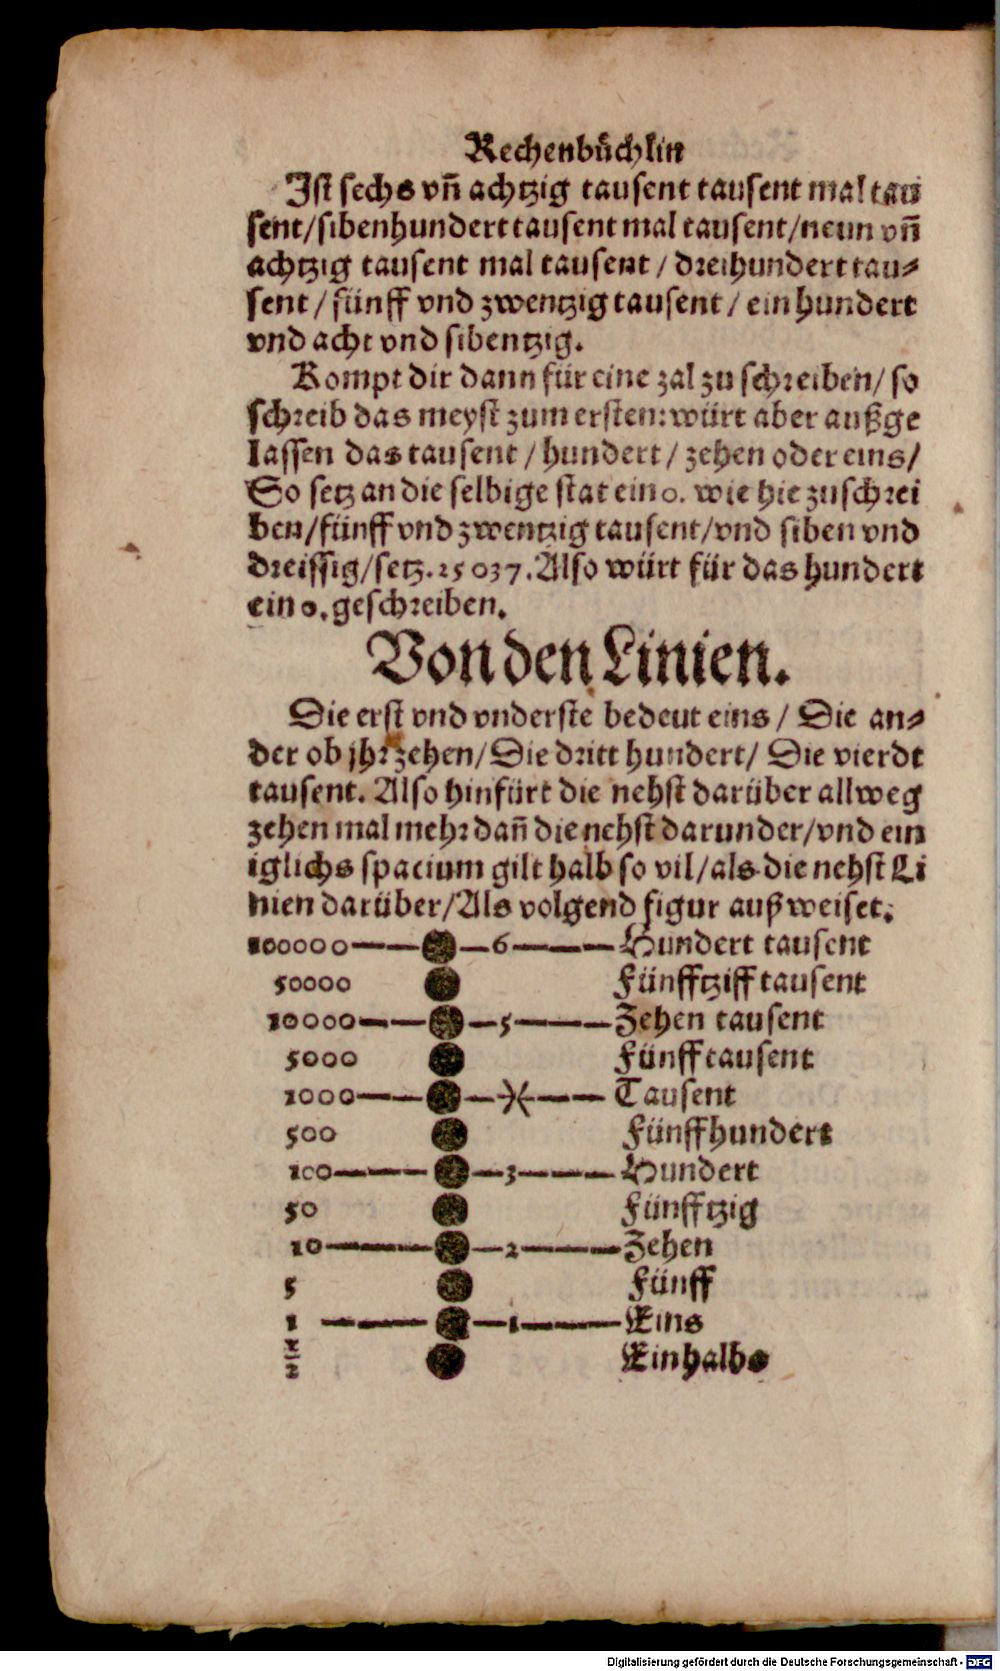 Rechenbüchlin
Ist sechs vñ achtzig tausent tausent mal tau
sent/sibenhundert tausent mal tausent/neun vñ
achtzig tausent mal tausent / dreihundert tau⸗
sent / fünff vnd zwentzig tausent / ein hundert
vnd acht vnd sibentzig.
Kompt dir dann für eine zal zu schreiben/ so
schreib das meyst zum ersten: würt aber außge
lassen das tausent / hundert / zehen oder eins/
So setz an die selbige stat ein 0. wie hie zu schrei
ben/fünff vnd zwentzig tausent/vnd siben vnd
dreissig/setz. 25037. Also würt für das hundert
ein 0. geschreiben.
Von den Linien.
Die erst vnd vnderste bedeut eins / Die an⸗
der ob jhr zehen/Die dritt hundert/ Die vierdt
tausent. Also hinfürt die nehst darüber allweg
zehen mal mehr dañ die nehst darunder/vnd ein
iglichs spacium gilt halb so vil/als die nehst Li
nien darüber/Als volgend figur außweiset.
100000 6 Hundert tausent
50000 Fünfftziff tausent
10000 5 Zehen tausent
5000 Fünff tausent
1000 Tausent
500 Fünffhundert
100 3 Hundert
50 Fünfftzig
10 2 Zehen
5 Fünff
1 1 Eins
1/2 Einhalbs
Digitalisierung gefördert durch die Deutsche Forschungsgemeinschaft - DFG